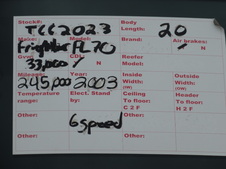 Stock#: TCC2023
Body Length: 20
Make: Model:
Frightliner FL70
Brand:
Air brakes:
Y N
GVW: CDL
33,000 Y N
Reefer Model:
Mileage: Year:
245,000 2003
Inside Width: (W)
Outside Width: (W)
Temperature range:
Elect. Stand by:
Ceiling To floor: C 2 F
Header To floor: H 2 F
Other: Other: Other: Other:
6 speed